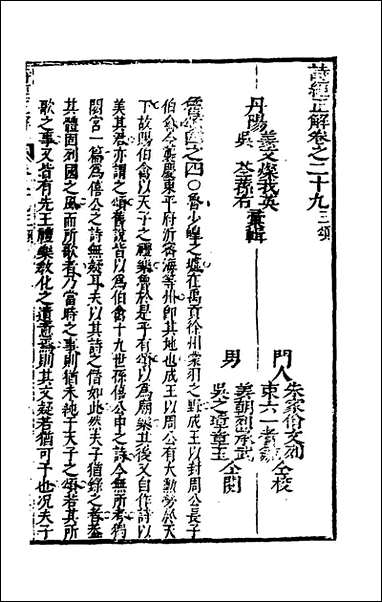 詩經正解卷之二十九 三頌
丹陽 姜文燦我英
吳 荃蓀右 彙輯
門人 朱家
全校
男 姜朝烈承武
吳之璋章玉 全閱
魯頌四之四○魯少皡之墟在禹貢徐州蒙羽之野成王以封周公長子
伯禽今襲慶東平府沂密海等州即其地也成王以周公有大勳勞於天
下故賜伯禽以天子之禮樂魯於是乎有頌以為廟樂其後又自作詩以
美其君亦謂之頌舊說皆以為伯禽十九世孫僖公申之詩今無所考獨
閟宮一篇為僖公之詩無疑耳夫以其詩之僭如此然夫子猶錄之者蓋
其體固列國之風而所歌者乃當時之事則猶未純于天子之頌若其所
歌之事又皆有先王禮樂教化之遺意焉則其文疑若猶可予也況夫子